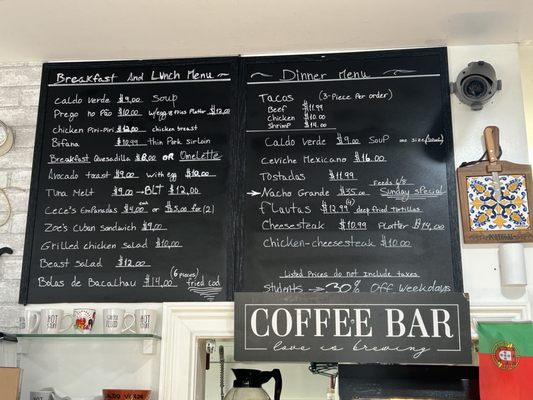 Breakfast And Lunch Menu
Caldo Verde $9.00 Soup
Prego no Pão $10.00 w/egg & fries Platter $12.00
Chicken Piri-Piri $12.00 chicken breast
Bifana $10.99 thin Pork Sirloin
Breakfast Quesadilla $8.00 OR Omelette
Avocado toast $9.00 with egg $10.00
Tuna Melt $9.00 BLT $12.00
Cece's Empanadas $4.00 each or $5.00 for (2)
Zoe's Cuban Sandwich $9.00
Grilled chicken Salad $10.00
Beast Salad $12.00
Bolas de Bacalhau $14.00 (6 pieces) fried Cod
Dinner Menu
Tacos (3-Piece Per order)
Beef $11.99
Chicken $10.99
Shrimp $14.00
Caldo Verde $9.00 Soup one size
Ceviche Mexicano $16.00
Tostadas $11.99
Nacho Grande $35.00 Feeds 6/8 Sunday special
flautas $12.99 (4) deep fried tortillas
Cheesesteak $10.99 Platter $14.00
Chicken-cheesesteak $10.00
Listed Prices do not include taxes
Students 30% Off Weekdays
COFFEE BAR
love is brewing
PORTUGAL